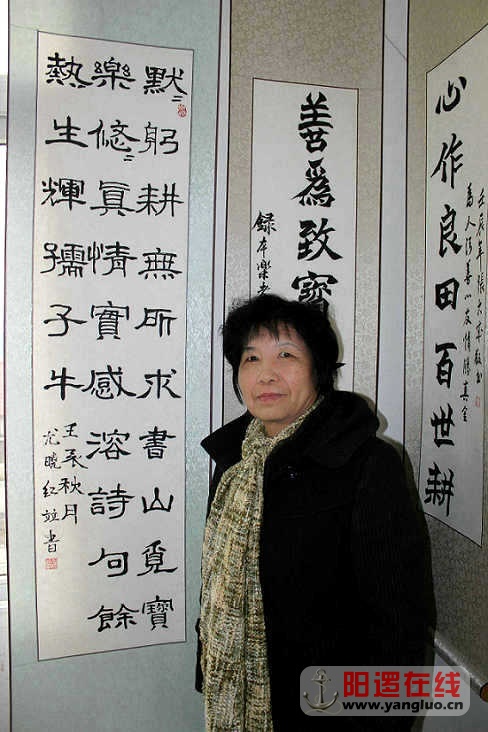 心作良田百世耕
善爲致寶
錄本樂
默〻躬耕無所求書山覓寶
樂悠〻眞情實感溶詩句餘
熱生輝孺子牛
壬辰秋月
尤曉紅並書
阳逻在线
www.yangluo.cn